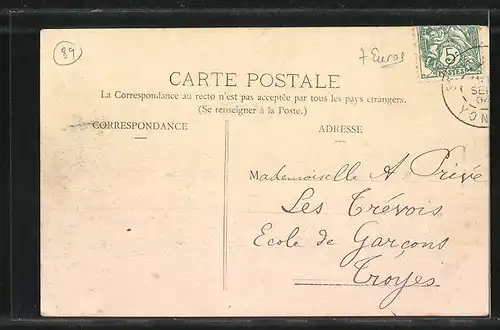 89
7 Euros
5
POSTES
CARTE POSTALE
La Correspondance au recto n'est pas acceptée par tous les pays étrangers.
(Se renseigner à la Poste.)
CORRESPONDANCE
ADRESSE
Mademoiselle A Privé
Les Trévois
Ecole de Garçons
Troyes